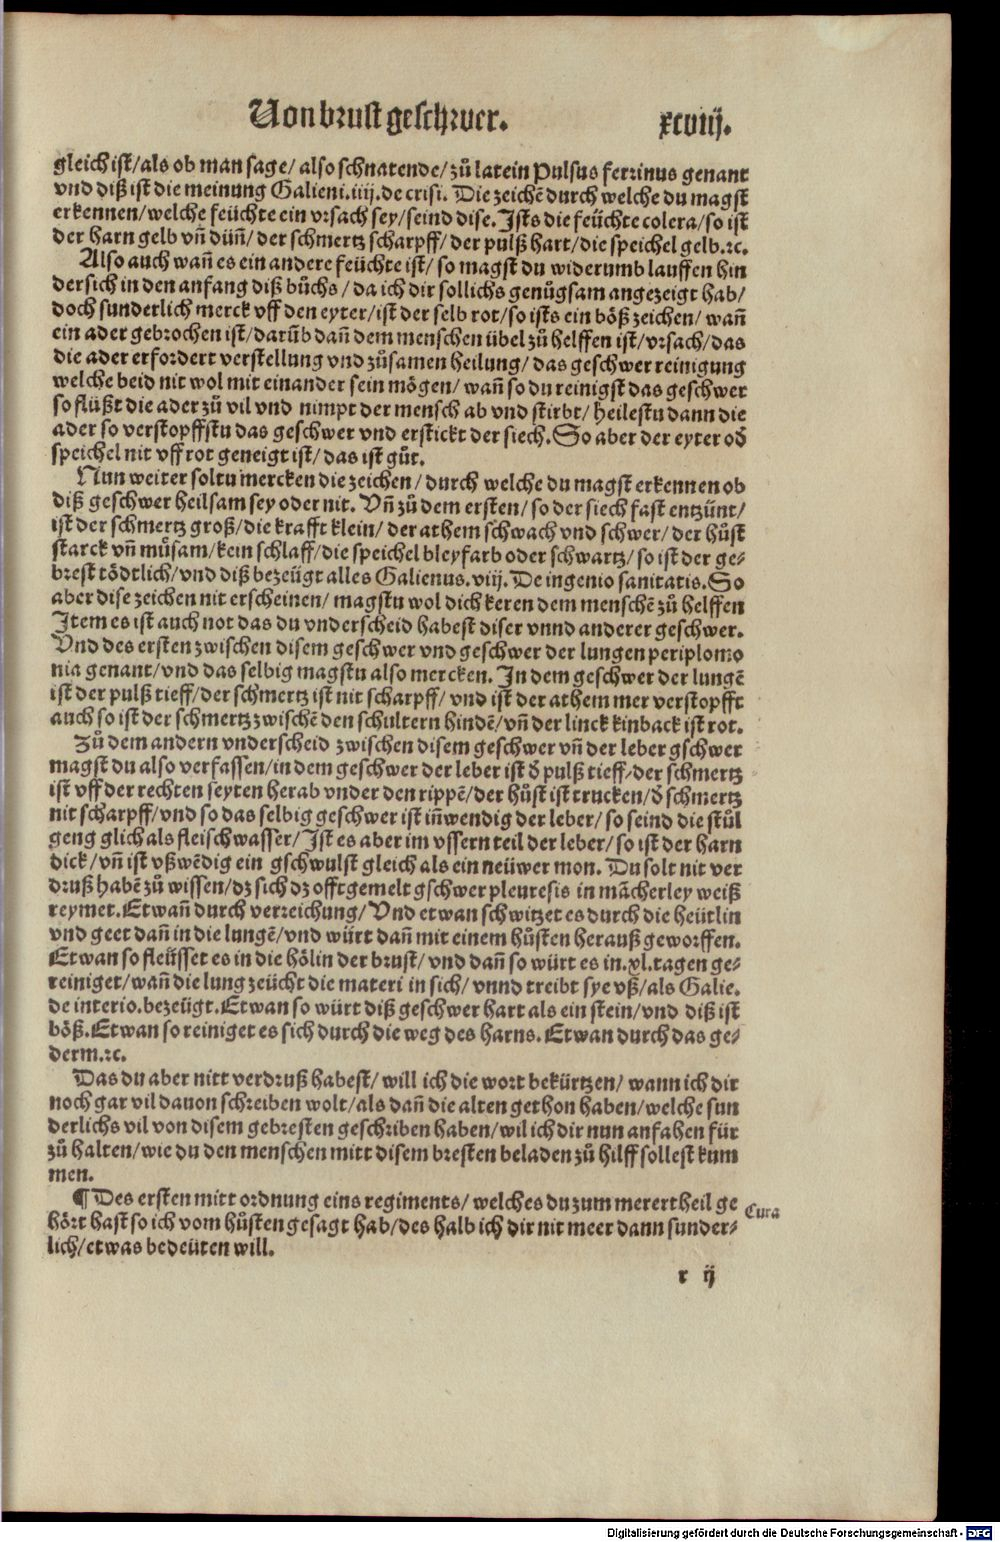 Von brust geschwer. xcviij.
gleich ist/als ob man sage/also schnatende/zů latein Pulsus serrinus genant
vnd diß ist die meinung Galieni.iiij.de crisi. Die zeichē durch welche du magst
erkennen/welche feüchte ein vrsach sey/seind dise. Ists die feüchte colera/so ist
der harn gelb vñ düñ/der schmertz scharpff/der pulß hart/die speichel gelb.⁊c.
Also auch wañ es ein andere feüchte ist/so magst du widerumb lauffen hin
dersich in den anfang diß bůchs/da ich dir sollichs genůgsam angezeigt hab/
doch sunderlich merck vff den eyter/ist der selb rot/so ists ein böß zeichen/wañ
ein ader gebrochen ist/darūb dañ dem menschen übel zů helffen ist/vrsach/das
die ader erfordert verstellung vnd zůsamen heilung/das geschwer reinigung
welche beid nit wol mit einander sein mögen/wañ so du reinigst das geschwer
so flüßt die ader zů vil vnd nimpt der mensch ab vnd stirbt/heilestu dann die
ader so verstopffstu das geschwer vnd erstickt der siech. So aber der eyter od̄
speichel nit vff rot geneigt ist/das ist gůt.
Nun weiter soltu mercken die zeichen/durch welche du magst erkennen ob
diß geschwer heilsam sey oder nit. Vñ zů dem ersten/so der siech fast entzünt/
ist der schmertz groß/die krafft klein/der athem schwach vnd schwer/der hůst
starck vñ můsam/kein schlaff/die speichel bleyfarb oder schwartz/so ist der ge-
brest tödtlich/vnd diß bezeügt alles Galienus.viij. De ingenio sanitatis. So
aber dise zeichen nit erscheinen/magstu wol dich keren dem menschē zů helffen
Item es ist auch not das du vnderscheid habest diser vnnd anderer geschwer.
Vnd des ersten zwischen disem geschwer vnd geschwer der lungen periplomo
nia genant/vnd das selbig magstu also mercken. In dem geschwer der lungē
ist der pulß tieff/der schmertz ist nit scharpff/vnd ist der athem mer verstopfft
auch so ist der schmertz zwischē den schultern hindē/vñ der linck kinback ist rot.
Zů dem andern vnderscheid zwischen disem geschwer vñ der leber gschwer
magst du also verfassen/in dem geschwer der leber ist d̄ pulß tieff/der schmertz
ist vff der rechten seyten herab vnder den rippē/der hůst ist trucken/d̄ schmertz
nit scharpff/vnd so das selbig geschwer ist iñwendig der leber/so seind die stůl
geng glich als fleischwasser/Ist es aber im vssern teil der leber/so ist der harn
dick/vñ ist vßwēdig ein gschwulst gleich als ein neüwer mon. Du solt nit ver
druß habē zů wissen/dz sich dz offtgemelt gschwer pleuresis in mācherley weiß
reymet. Etwañ durch verreichung/Vnd etwan schwitzet es durch die heütlin
vnd geet dañ in die lungē/vnd würt dañ mit einem hůsten herauß geworffen.
Etwan so fleüsset es in die hölin der brust/vnd dañ so würt es in.xl.tagen ge-
reiniget/wañ die lung zeücht die materi in sich/vnnd treibt sye vß/als Galie.
de interio.bezeügt. Etwan so würt diß geschwer hart als ein stein/vnd diß ist
böß. Etwan so reiniget es sich durch die weg des harns. Etwan durch das ge-
derm.⁊c.
Das du aber nitt verdruß habest/will ich die wort bekürtzen/wann ich dir
noch gar vil dauon schreiben wolt/als dañ die alten gethon haben/welche sun
derlichs vil von disem gebresten geschriben haben/wil ich dir nun anfahen für
zů halten/wie du den menschen mitt disem bresten beladen zů hilff sollest kum
men.
¶ Des ersten mitt ordnung eins regiments/welches du zum merertheil ge
hört hast so ich vom hůsten gesagt hab/des halb ich dir nit meer dann sunder-
lich/etwas bedeüten will.
Cura
r ij
Digitalisierung gefördert durch die Deutsche Forschungsgemeinschaft - DFG